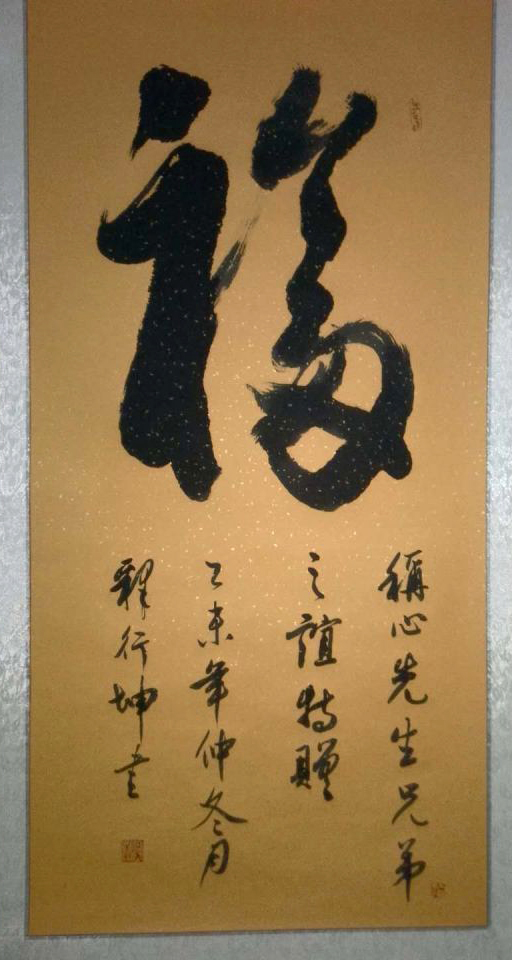 福
稱心先生兄弟
之誼特贈
乙未年仲冬月
釋行坤書